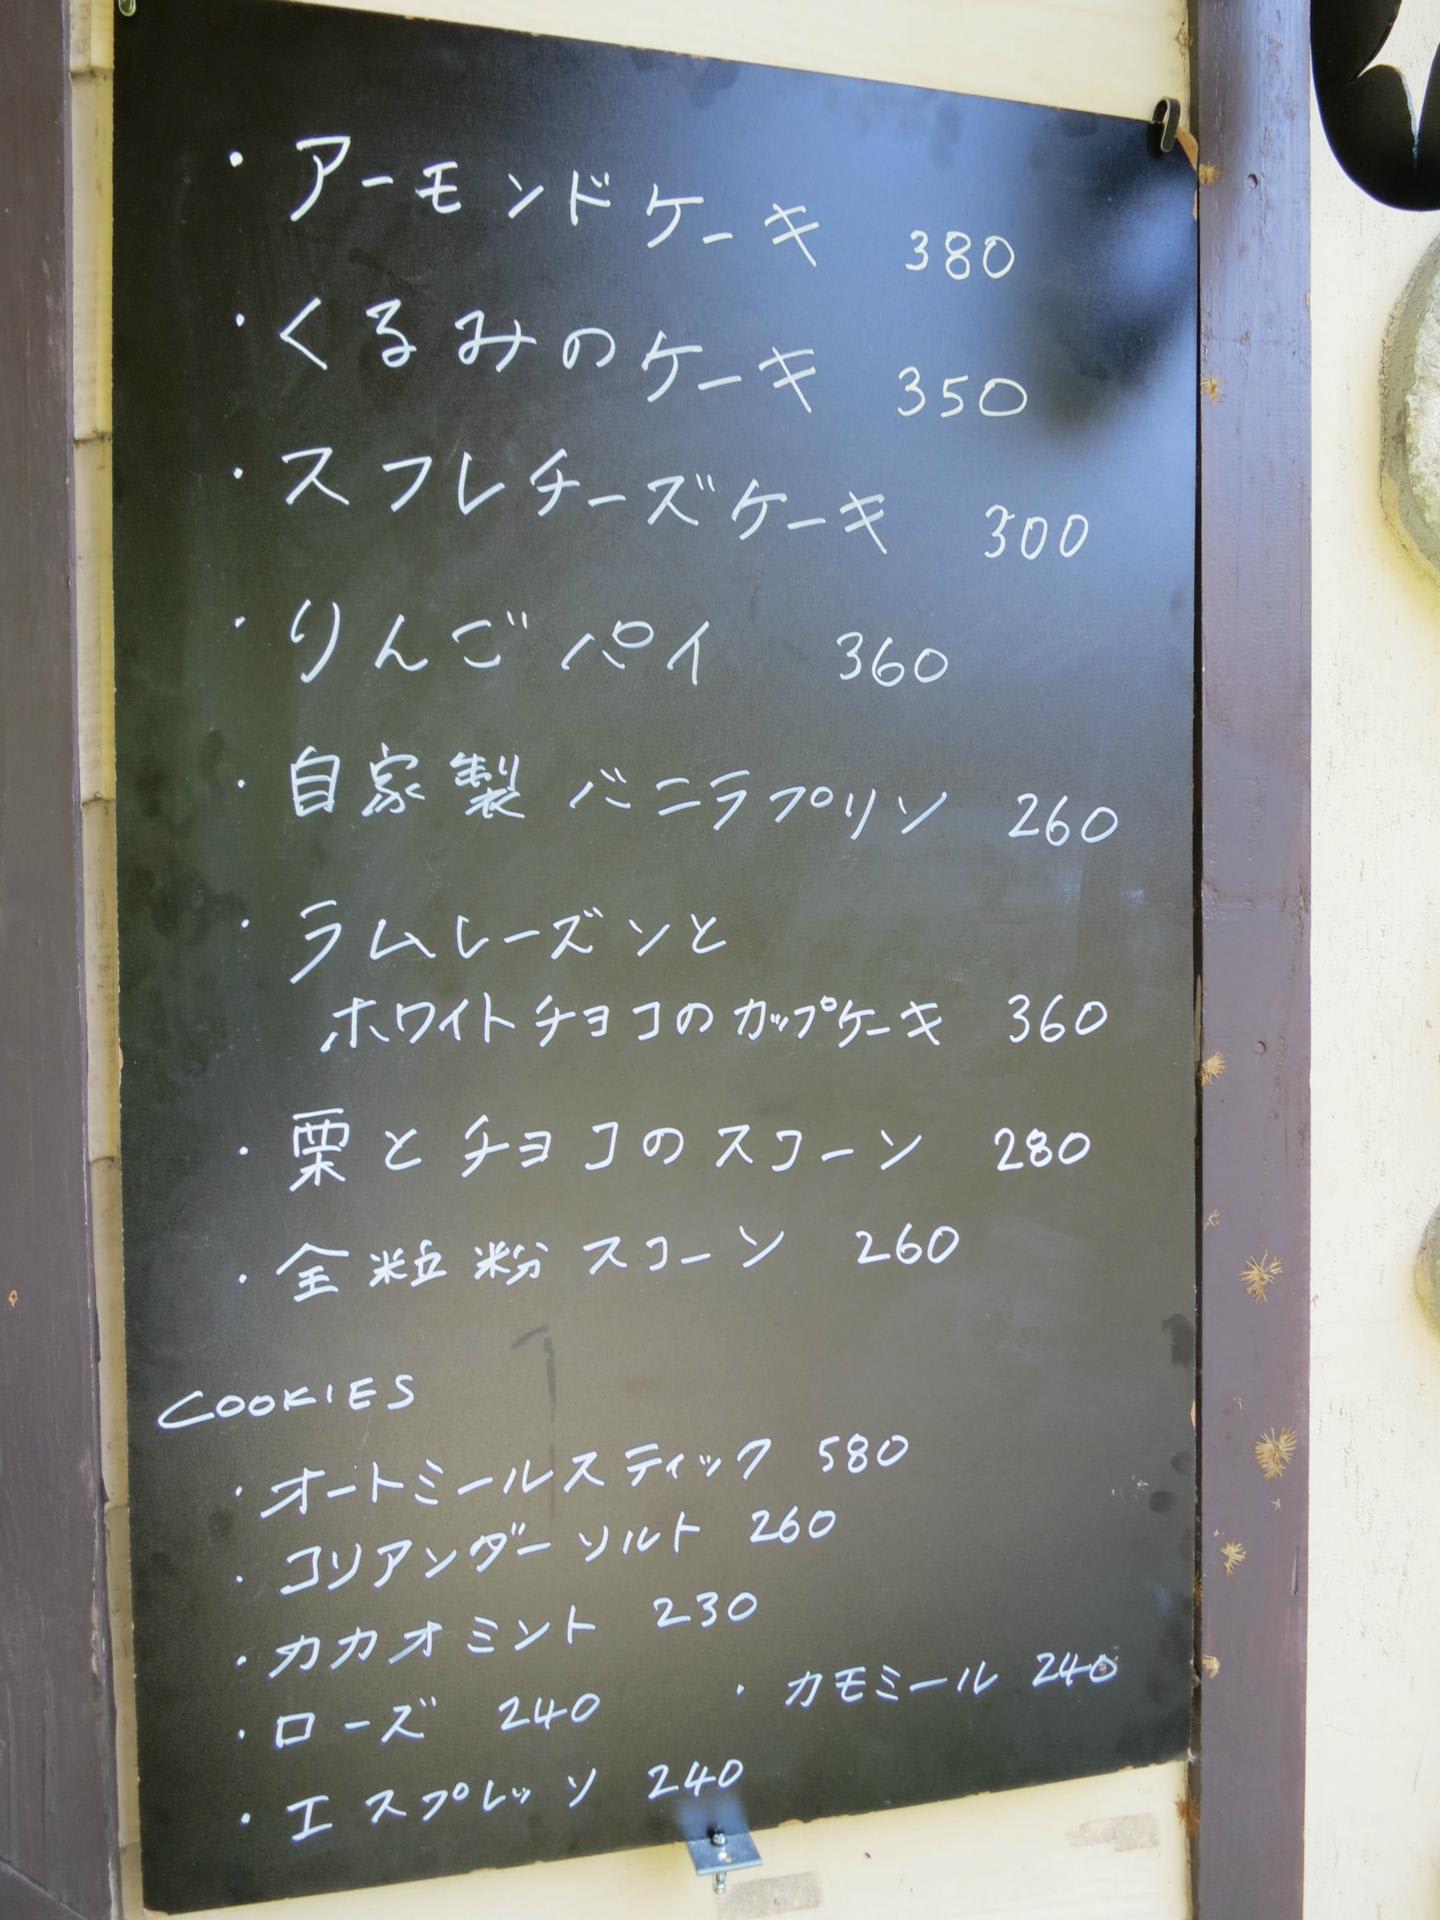 ・アーモンドケーキ 380
・くるみのケーキ 350
・スフレチーズケーキ 300
・りんごパイ 360
・自家製バニラプリン 260
・ラムレーズンと
ホワイトチョコのカップケーキ 360
・栗とチョコのスコーン 280
・全粒粉スコーン 260
COOKIES
・オートミールスティック 580
・コリアンダーソルト 260
・カカオミント 230
・ローズ 240 ・カモミール 240
・エスプレッソ 240